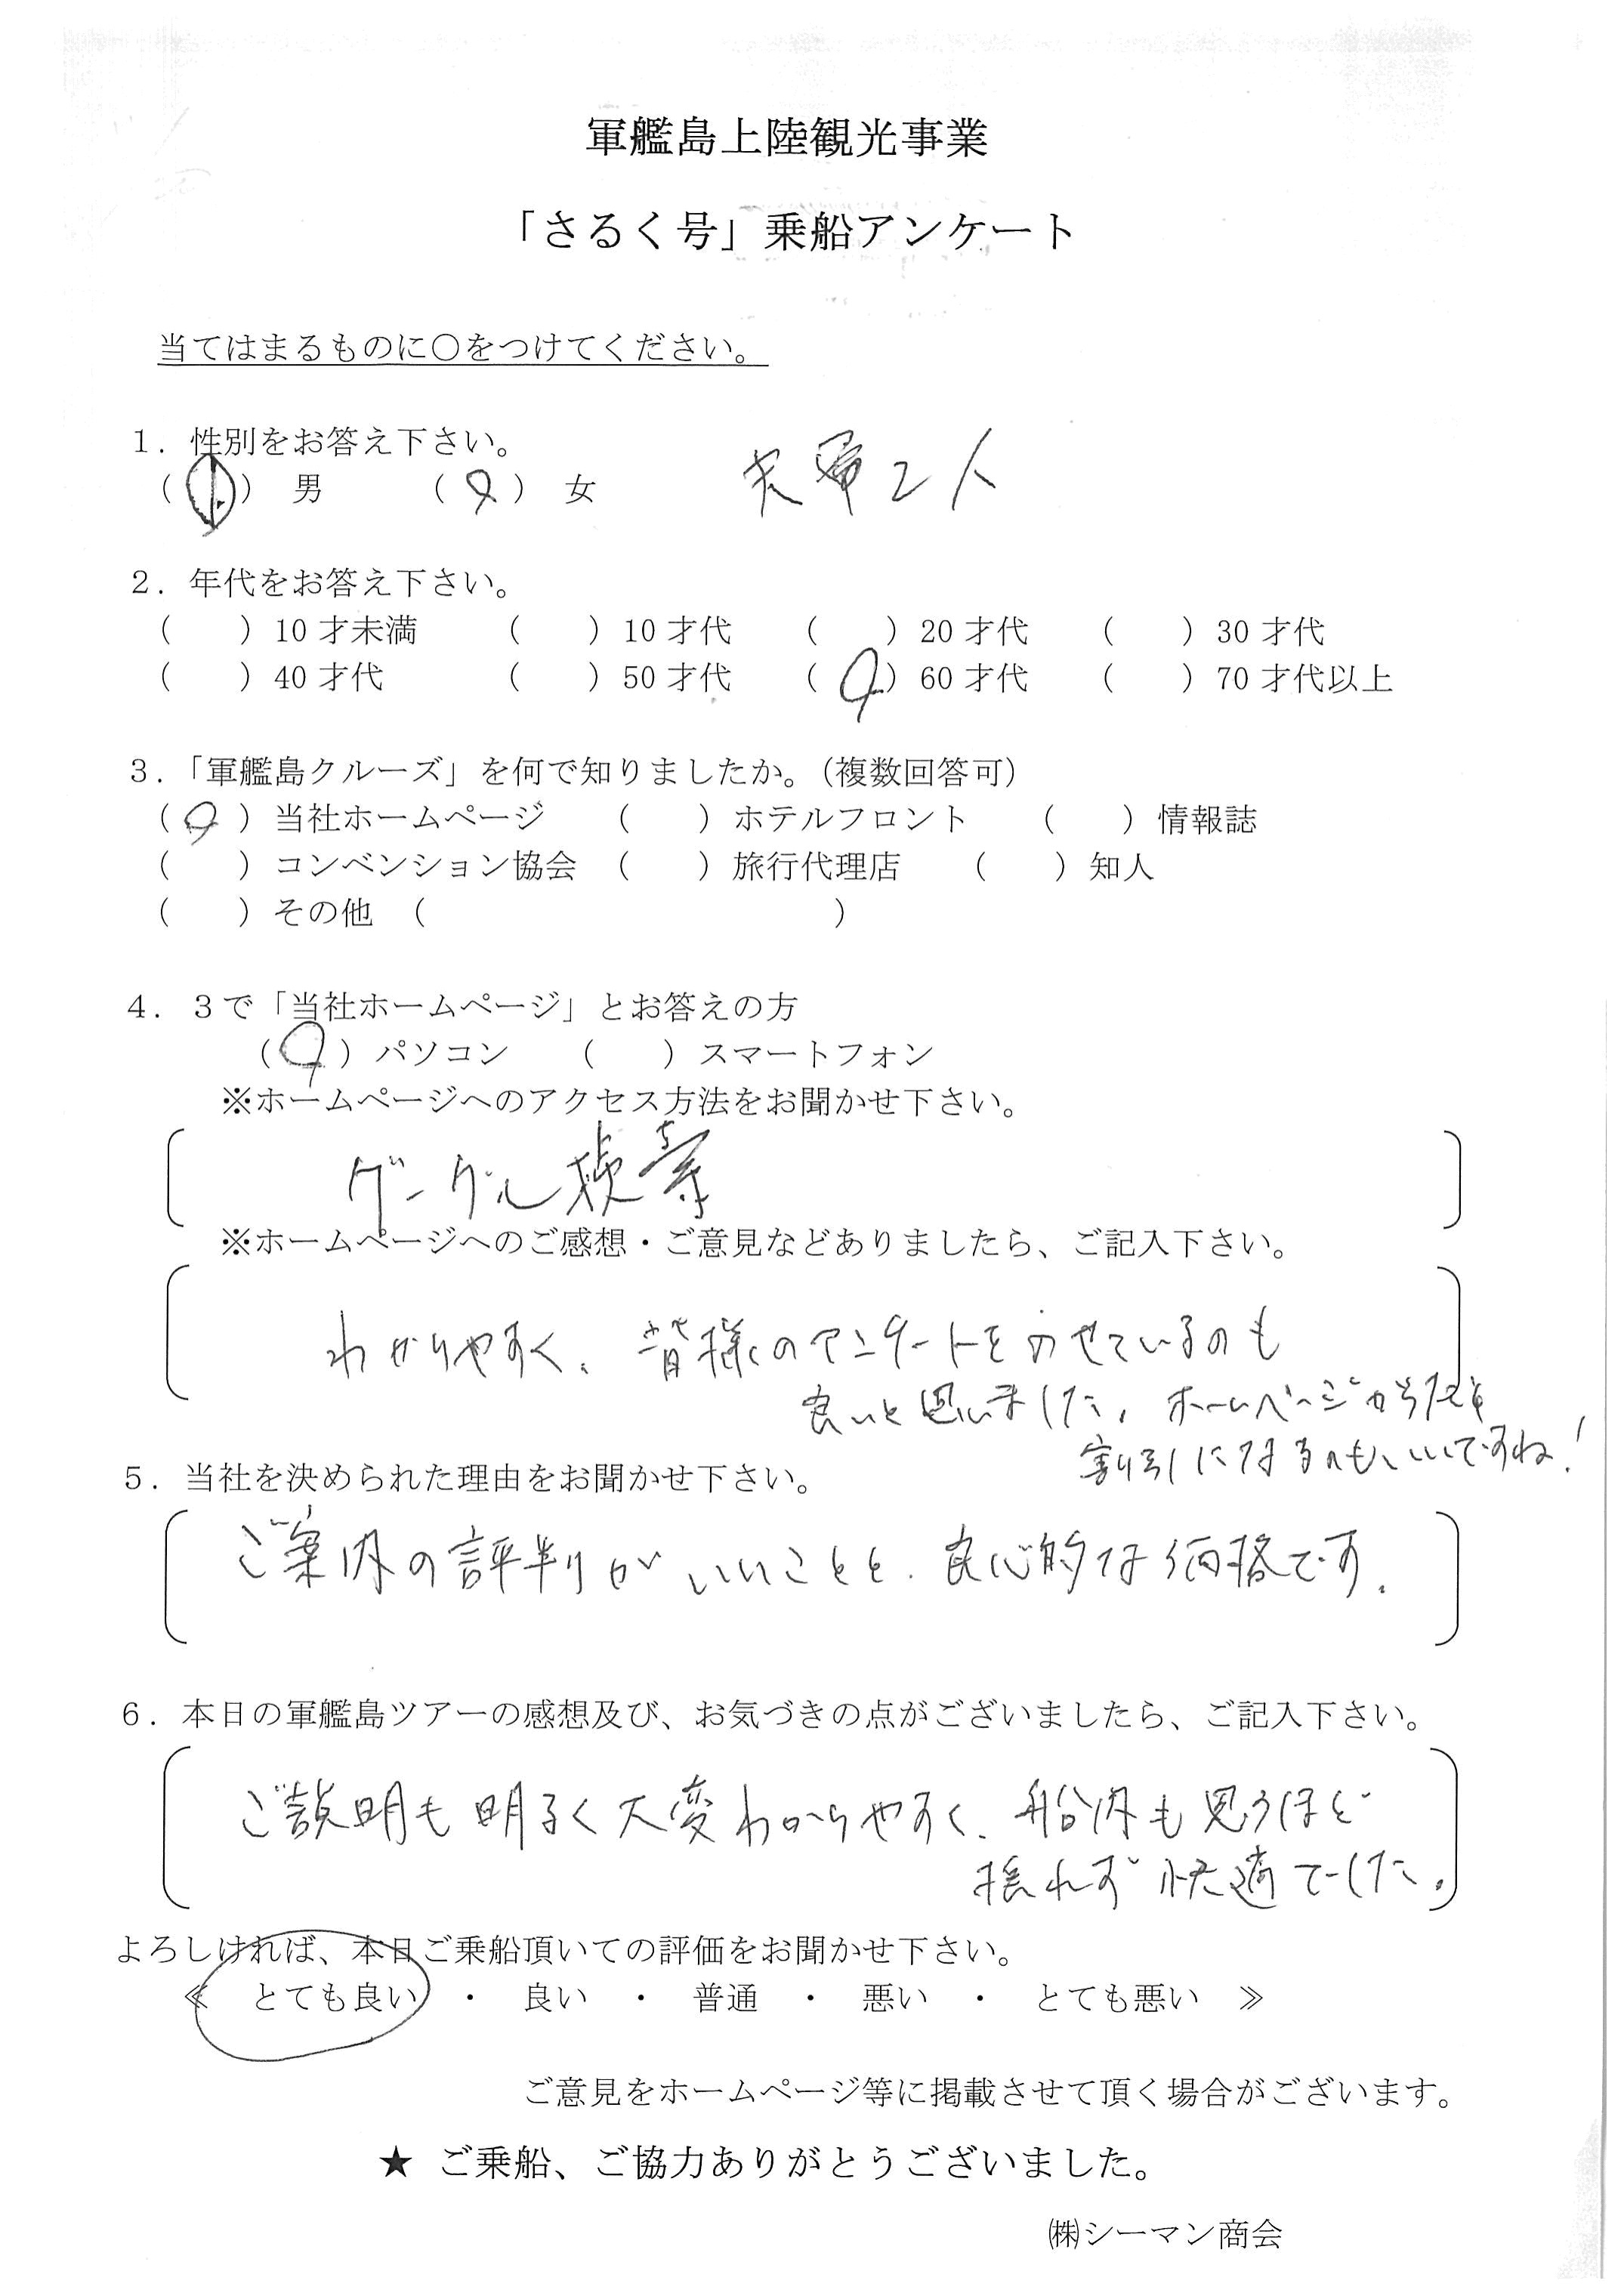 軍艦島上陸観光事業
「さるく号」乗船アンケート
当てはまるものに○をつけてください。
1．性別をお答え下さい。
（ ○ ） 男 （ ○ ） 女 夫婦2人
2．年代をお答え下さい。
（ ）10才未満 （ ）10才代 （ ）20才代 （ ）30才代
（ ）40才代 （ ）50才代 （ ○ ）60才代 （ ）70才代以上
3．「軍艦島クルーズ」を何で知りましたか。（複数回答可）
（ ○ ）当社ホームページ （ ）ホテルフロント （ ）情報誌
（ ）コンベンション協会 （ ）旅行代理店 （ ）知人
（ ）その他 （ ）
4．3で「当社ホームページ」とお答えの方
（ ○ ）パソコン （ ）スマートフォン
※ホームページへのアクセス方法をお聞かせ下さい。
グーグル検索
※ホームページへのご感想・ご意見などありましたら、ご記入下さい。
わかりやすく、皆様のアンケートをのせているのも
良いと思いました。ホームページからだと
割引になるのも、いいですね!
5．当社を決められた理由をお聞かせ下さい。
ご案内の評判がいいことと、良心的な価格です。
6．本日の軍艦島ツアーの感想及び、お気づきの点がございましたら、ご記入下さい。
ご説明も明るく大変わかりやすく、船内も思うほど
揺れず快適でした。
よろしければ、本日ご乗船頂いての評価をお聞かせ下さい。
≪ とても良い ・ 良い ・ 普通 ・ 悪い ・ とても悪い ≫
ご意見をホームページ等に掲載させて頂く場合がございます。
★ ご乗船、ご協力ありがとうございました。
㈱シーマン商会